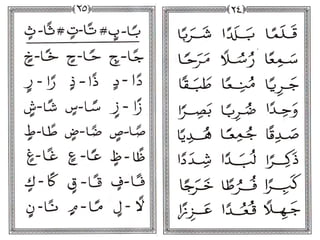 (٢٤)
قَلَمًا بَلَدًا شَرَبًا
سَمِعًا رُسُلًا مَرَحًا
جَرِيًا مُنِعًا طَبَقًا
وَحِدًا ضُرِبًا بَصِرًا
صَدِقًا جُمِعًا هُدِيًا
ذَكِرًا لُبَدًا شِدَدًا
كَبِرًا فُرُطًا خَرَجًا
جَهِلًا قُعُدًا عَزِزًا
(٢٥)
بًا-بٍ # تًا-تٍ # ثًا-ثٍ
جًا-جٍ حًا-حٍ خًا-خٍ
دًا-دٍ ذًا-ذٍ رًا-رٍ
زًا-زٍ سًا-سٍ شًا-شٍ
صًا-صٍ ضًا-ضٍ طًا-طٍ
ظًا-ظٍ عًا-عٍ غًا-غٍ
فًا-فٍ قًا-قٍ كًا-كٍ
لًا-لٍ مًا-مٍ نًا-نٍ